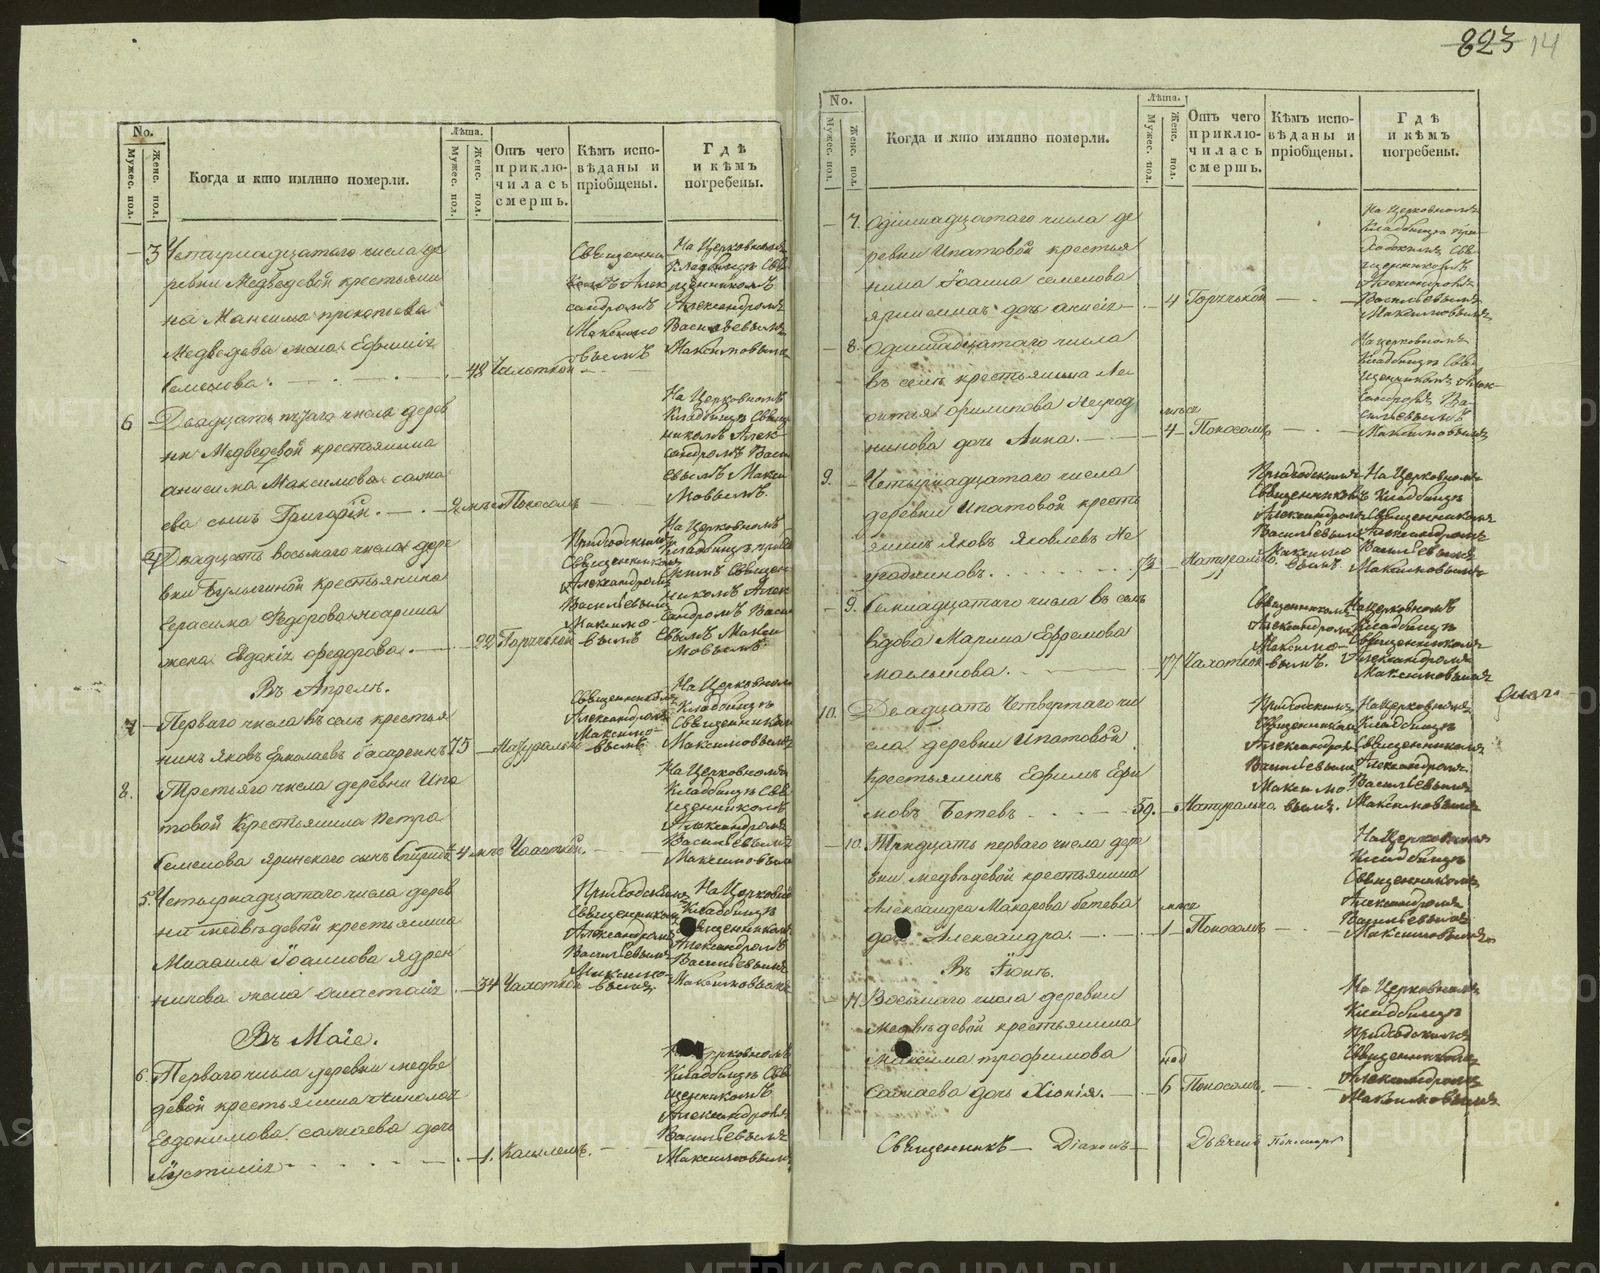 823 14
No.
Мужес. пол.
Женс. пол.
Когда и кто имянно померли.
Лѣта.
Мужес. пол.
Женс. пол.
Отъ чего приключилась смерть.
Кѣмъ исповѣданы и пріобщены.
Гдѣ и кѣмъ погребены.
3 Четырнадцатаго числа де
ревни Медведевой крестьяни
на Максима прокопьева
Медведева жена Ефимія
Семенова. 48 Чахоткой
Священни
комъ Алек
сандромъ
Максимо
вымъ
На Церковномъ
Кладбищѣ Свя
щенникомъ
Александромъ
Васильевымъ
Максимовымъ
6 Двадцать числа дерев
ни Медведевой крестьянина
анисима Максимова
сынъ Григорій. 2 Поносомъ
На Церковномъ
Кладбищѣ Священ
никомъ Алек
сандромъ Васи
евымъ Макси
мовымъ.
Двадцать восьмаго числа дере
вни крестьянина
Герасима Федорова
жена Евдокія федорова. 22 Горячкой
Приходскимъ
Священникомъ
Александромъ
Васильевымъ
Максимо
вымъ
На Церковномъ
Кладбищѣ прихо
Священ
никомъ Алек
сандромъ Васи
евымъ Макси
мовымъ
Въ Апрелѣ.
7 Перваго числа въ селѣ крестья
нинъ Яковъ 75 Натурально
Священникомъ
Александромъ
Максимо
вымъ
На Церковномъ
Кладбищѣ
Священникомъ
Максимовымъ
8. Третьяго числа деревни Ипа
товой Крестьянина Петра
Семенова сынъ 4 Чахоткой.
На Церковномъ
Кладбищѣ Свя
щенникомъ
Александромъ
Васильевымъ
Максимовымъ
5. Четырнадцатаго числа дерев
ни медвѣдевой крестьянина
Михаила Іоаннова Ядрен
никова жена Анастасія 34 Чахоткой
Приходскимъ
Священникомъ
Александромъ
Васильевымъ
Максимо
вымъ
На Церковномъ
Кладбищѣ
Священникомъ
Александромъ
Васильевымъ
Максимовымъ
Въ Маіе.
6 Перваго числа деревни медве
девой крестьянина Николая
Евдокимова дочь
Іустинія 1. Кашлемъ.
На Церковномъ
Кладбищѣ Свя
щенникомъ
Александромъ
Васильевымъ
Максимовымъ
No.
Мужес. пол.
Женс. пол.
Когда и кто имянно померли.
Лѣта.
Мужес. пол.
Женс. пол.
Отъ чего приключилась смерть.
Кѣмъ исповѣданы и пріобщены.
Гдѣ и кѣмъ погребены.
7. Одіннадцатаго числа де
ревни Ипатовой крестья
нина Іоанна семенова
дочь анисія 4 Горячкой
На Церковномъ
Кладбищѣ при
ходскимъ Свя
щенникомъ
Александромъ
Васильевымъ
Максимовымъ
8. Одіннадцатаго числа
въ селѣ крестьянина Ле
онтія филипова
дочь Анна. 4 Поносомъ
На церковномъ
Кладбищѣ Свя
щенникомъ Алек
сандромъ Ва
сильевымъ
Максимовымъ
9. Четырнадцатаго числа
деревни Ипатовой кресть
янинъ Яковъ Яковлевъ Не
73 Натурально
Приходскимъ
Священникомъ
Александромъ
Васильевымъ
Максимо
вымъ
На Церковномъ
Кладбищѣ
Священникомъ
Александромъ
Васильевымъ
Максимовымъ
9. Семнадцатаго числа въ селѣ
Вдова Марина Ефремова
77 Чахоткой
Священникомъ
Александромъ
Максимо
вымъ.
На Церковномъ
Кладбищѣ
Священникомъ
Александромъ
Максимовымъ
10. Двадцать Четвертаго чи
сла деревни Ипатовой
Крестьянинъ Ефимъ Ефи
мовъ Бетевъ 59. Натурально
Приходскимъ
Священникомъ
Александромъ
Васильевымъ
Максимо
вымъ.
На Церковномъ
Кладбищѣ
Священникомъ
Александромъ
Васильевымъ
Максимовымъ
10. Тридцать перваго числа дере
вни медвѣдевой крестьянина
Александра Макарова бетева
дочь Александра. 1 Поносомъ
На Церковномъ
Кладбищѣ
Священникомъ
Александромъ
Васильевымъ
Максимовымъ
Въ Іюнѣ.
11. Восьмаго числа деревни
медвѣдевой крестьянина
максима трофимова
дочь Хіонія. нед 6 Поносомъ.
На Церковномъ
Кладбищѣ
Приходскимъ
Священникомъ
Александромъ
Максимовымъ
Священникъ Діаконъ Дьячекъ Пономарь
METRIKI.GASO-URAL.RU